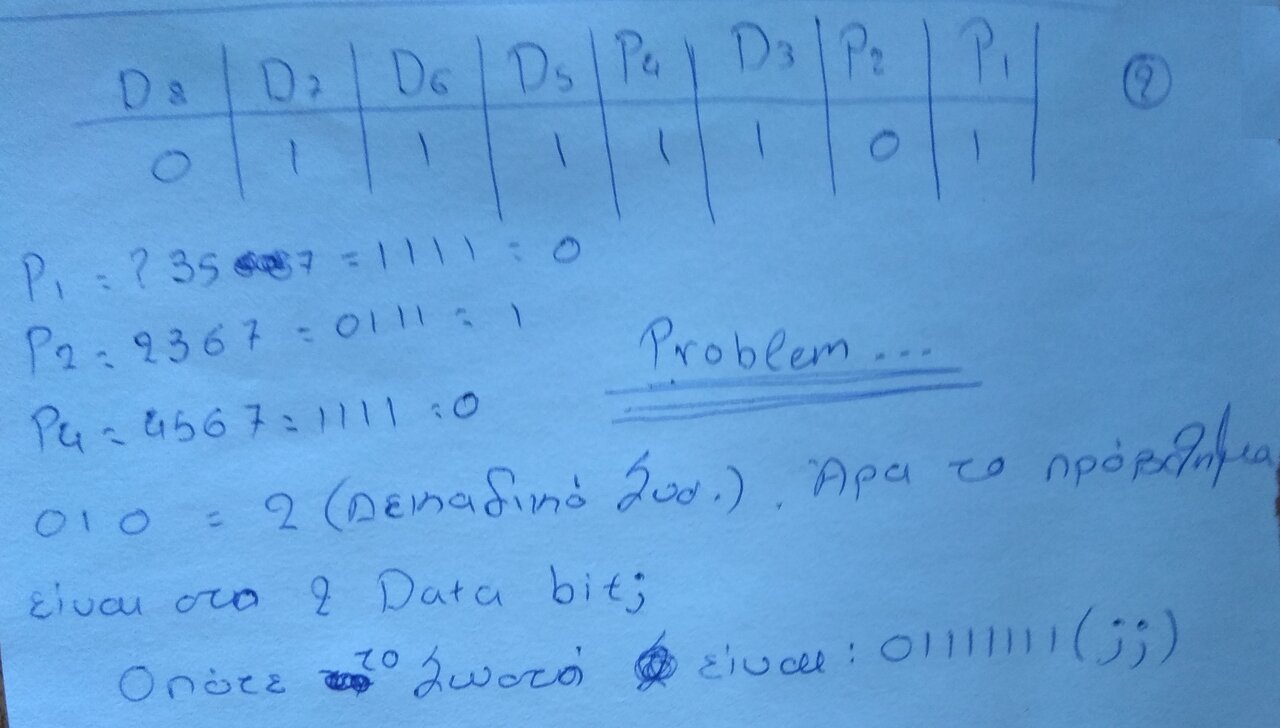 D8 | D7 | D6 | D5 | P4 | D3 | P2 | P1 |
②
0 | 1 | 1 | 1 | 1 | 1 | 0 | 1 |
P1 = ? 35 7 = 1111 = 0
P2 = 2367 = 0111 = 1
Problem...
P4 = 4567 = 1111 = 0
010 = 2 (Δεκαδικό Συσ.). Άρα το πρόβλημα
είναι στο 2 Data bit;
Οπότε το Σωστό είναι: 01111111(;;)